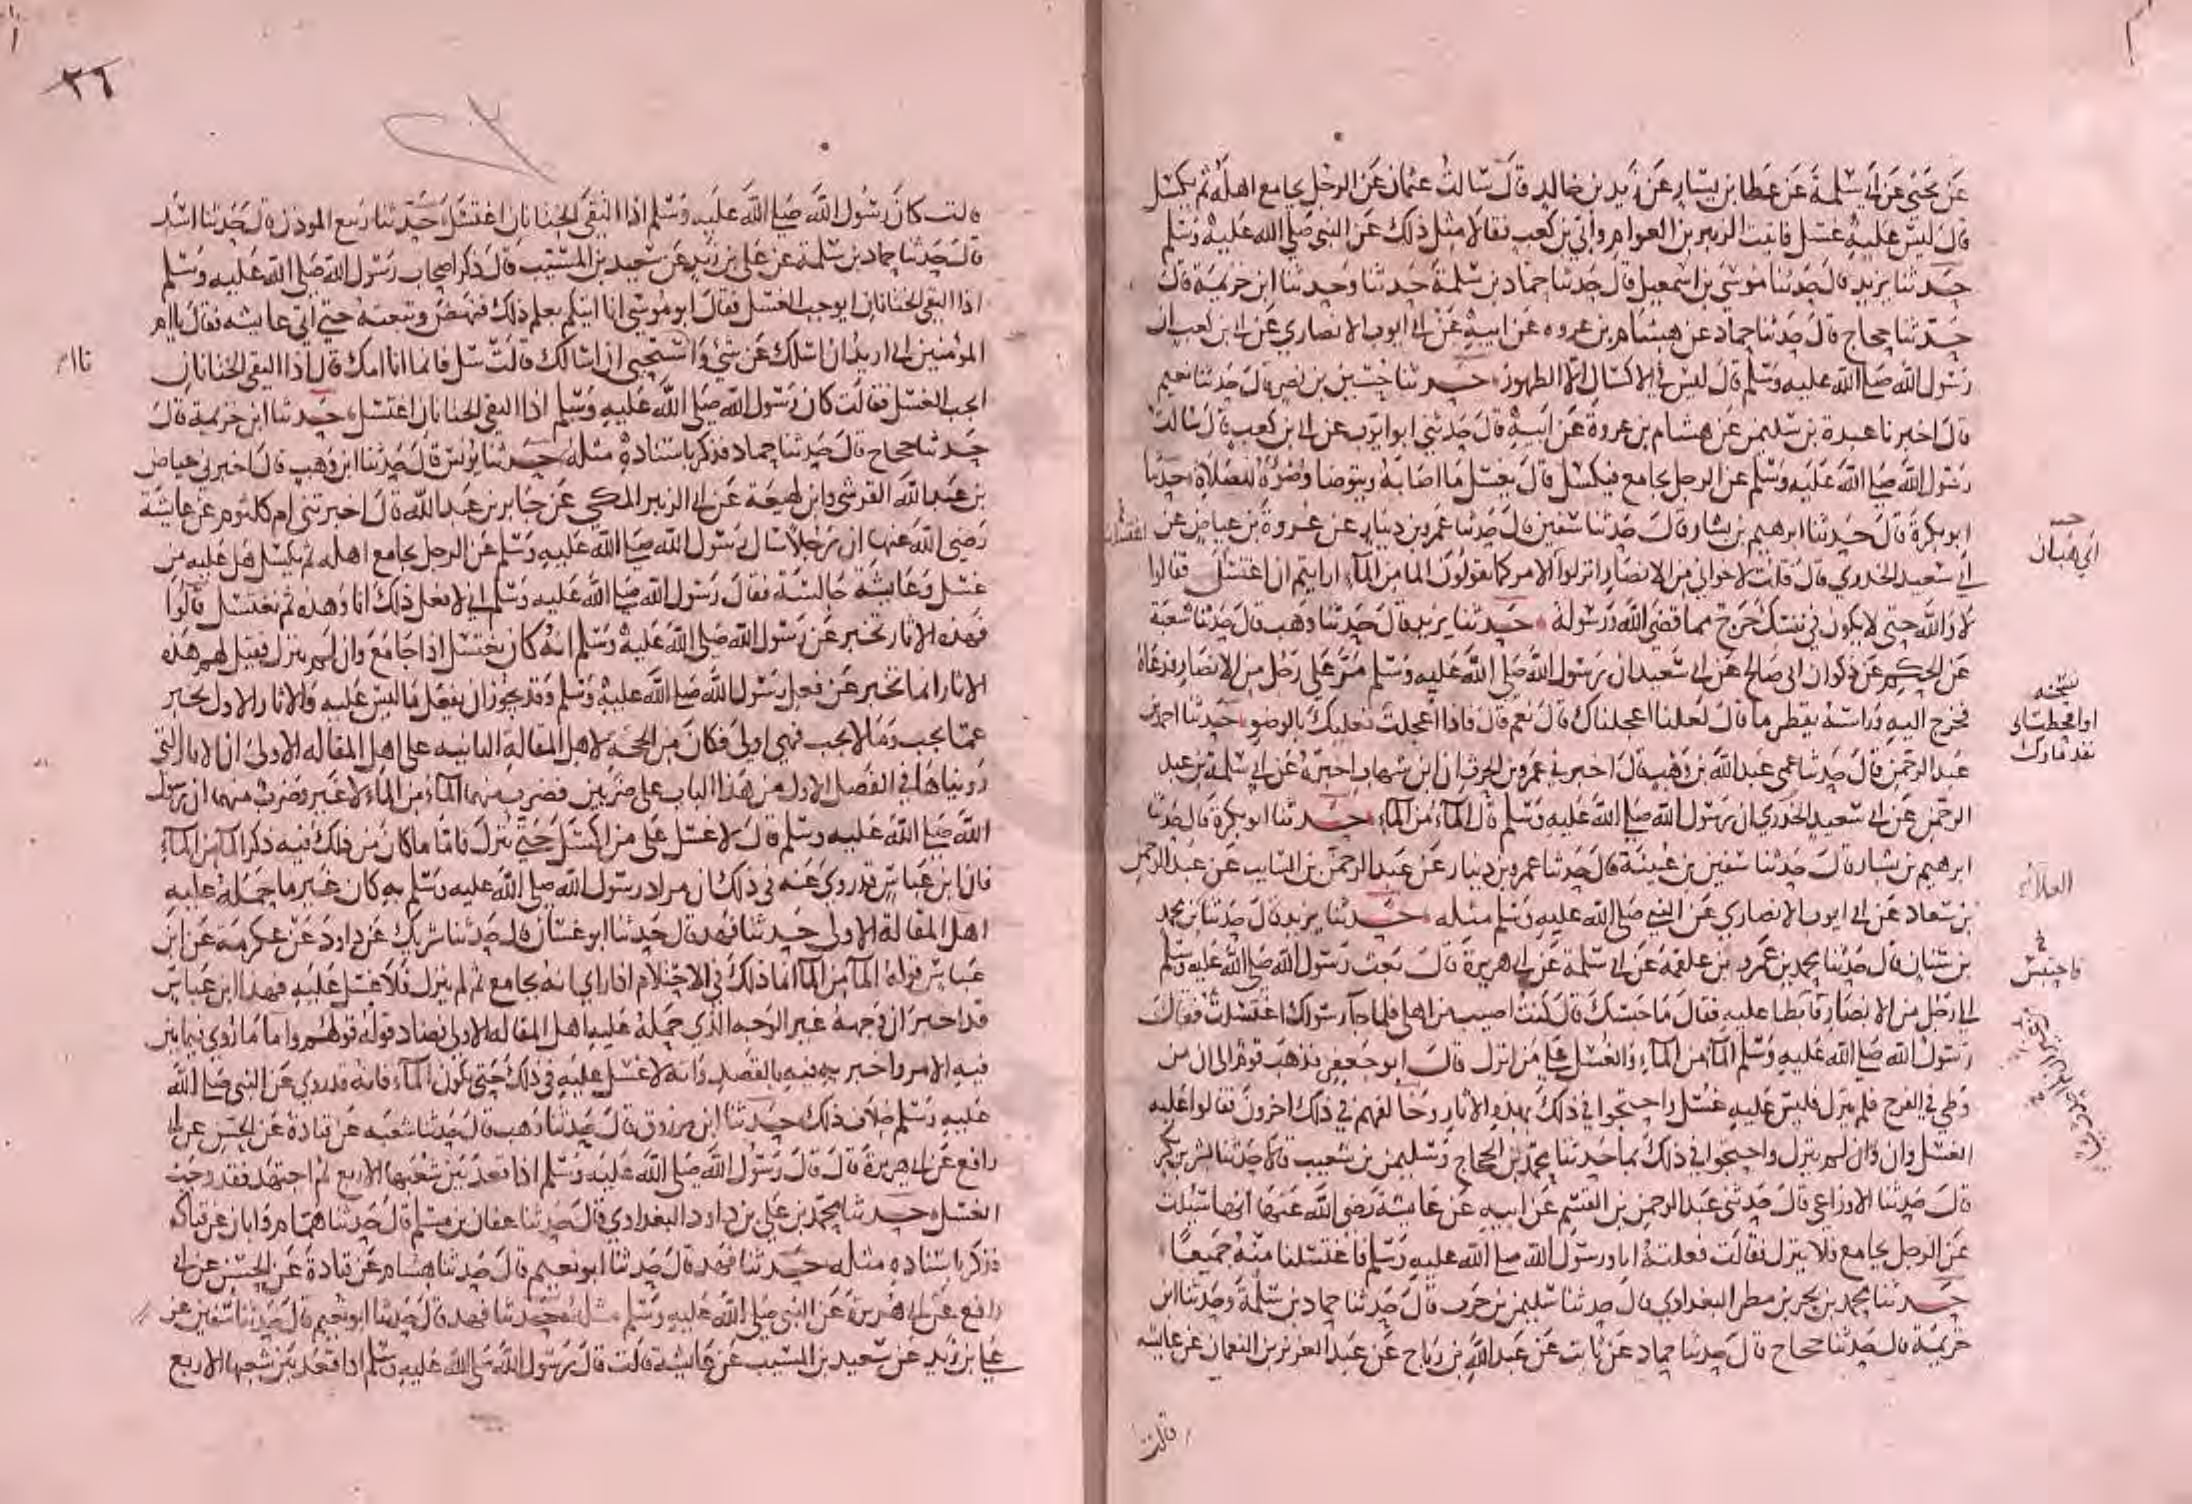 عن يحيى عن ابي سلمة عن عطا بن يسار عن زيد بن خالد قال سالت عثمان عن الرجل يجامع اهله ثم يكسل
قال ليس عليه غسل فاتيت الزبير بن العوام وابي بن كعب فقالا مثل ذلك عن النبي صلى الله عليه وسلم
حدثنا يزيد قال حدثنا موسى بن اسمعيل قال حدثنا حماد بن سلمة حدثنا وحدثنا ابن خزيمة قال
حدثنا حجاج قال حدثنا حماد عن هشام بن عروه عن ابيه عن ابي ايوب الانصاري عن ابي بن كعب ان
رسول الله صلى الله عليه وسلم قال ليس في الاكسال الا الطهور حدثنا حسين بن نصر قال حدثنا نعيم
قال اخبرنا عبدة بن سليمن عن هشام بن عروة عن ابيه قال حدثني ابو ايوب عن ابي بن كعب قال سالت
رسول الله صلى الله عليه وسلم عن الرجل يجامع فيكسل قال يغسل ما اصابه ويتوضا وضوه للصلاة حدثنا
ابو بكرة قال حدثنا ابرهيم بن بشار قال حدثنا سفين قال حدثنا عمرو بن دينار عن عروة بن عياض عن
ابي سعيد الخدري قال قلت لاخواني من الانصار انزلوا الامر كما يقولون الما من الماء ارايتم ان اغتسل فقالوا
لا والله حتى لا يكون في نفسك حرج مما قضى الله ورسوله حدثنا يزيد قال حدثنا وهب قال حدثنا شعبة
عن الحكم عن ذكوان ابي صالح عن ابي سعيد ان رسول الله صلى الله عليه وسلم مر على رجل من الانصار فدعاه
فخرج اليه وراسه يقطر ما قال لعلنا اعجلناك قال نعم قال فاذا اعجلت فعليك بالوضو حدثنا احمد بن
عبد الرحمن قال حدثنا عمي عبد الله بن وهب قال اخبرني عمرو بن الحرث ان ابن شهاب اخبره عن ابي سلمة بن عبد
الرحمن عن ابي سعيد الخدري ان رسول الله صلى الله عليه وسلم قال الماء من الماء حدثنا ابو بكرة قال حدثنا
ابرهيم بن بشار قال حدثنا سفين بن عيينة قال حدثنا عمرو بن دينار عن عبد الرحمن بن السايب عن عبد الرحمن
بن سعاد عن ابي ايوب الانصاري عن النبي صلى الله عليه وسلم مثله حدثنا يزيد قال حدثنا بن محمد
بن سنان قال حدثنا محمد بن عمرو بن علقمة عن ابي سلمة عن ابي هريرة قال بعث رسول الله صلى الله عليه وسلم
الى رجل من الانصار فابطا عليه فقال ما حبسك قال كنت اصيب من اهلي فلما جآ رسولك اغتسلت فقال
رسول الله صلى الله عليه وسلم المآ من المآء والغسل على من انزل قال ابو جعفر فذهب قوم الى ان من
وطي في الفرج فلم ينزل فليس عليه غسل واحتجوا في ذلك بهذه الاثار وخالفهم في ذلك اخرون فقالوا عليه
الغسل وان لم ينزل واحتجوا في ذلك بما حدثنا محمد بن الحجاج وسليمن بن شعيب قالا حدثنا بشر بن بكر
قال حدثنا الاوزاعي قال حدثني عبد الرحمن بن القسم عن ابيه عن عايشة رضي الله عنها انها سئلت
عن الرجل يجامع فلا ينزل فقالت فعلته انا ورسول الله صلى الله عليه وسلم فاغتسلنا منه جميعا
حدثنا محمد بن بحر بن مطر البغدادي قال حدثنا سليمن بن حرب قال حدثنا حماد بن سلمة وحدثنا ابن
خزيمة قال حدثنا حجاج قال حدثنا حماد عن ثابت عن عبد الله بن رباح عن عبد العزيز بن النعمان عن عايشه
قالت
نسخه
او اقحطت
العلاء
في
فاحتبس
٢٦
قالت كان رسول الله صلى الله عليه وسلم اذا التقى الختانان اغتسل حدثنا ربيع الموذن قال حدثنا اسد
قال حدثنا حماد بن سلمة عن علي بن زيد عن سعيد بن المسيب قال ذكر اصحاب رسول الله صلى الله عليه وسلم
اذا التقى الختانان ايوجب الغسل فقال ابو موسى انا اتيكم بعلم ذلك فنهض وتبعته حتى اتى عايشه فقال يا ام
المؤمنين اني اريد ان اسلك عن شي وانا استحيي ان اسالك قالت سل فانما انا امك قال اذا التقى الختانان
ايجب الغسل فقالت كان رسول الله صلى الله عليه وسلم اذا التقى الختانان اغتسل حدثنا ابن خزيمة قال
حدثنا حجاج قال حدثنا حماد فذكر باسناده مثله حدثنا يونس قال حدثنا ابن وهب قال اخبرني عياض
بن عبد الله القرشي وابن لهيعة عن ابي الزبير المكي عن جابر بن عبد الله قال اخبرتني ام كلثوم عن عايشة
رضي الله عنها ان رجلا سال رسول الله صلى الله عليه وسلم عن الرجل يجامع اهله ثم يكسل هل عليه من
غسل وعايشة جالسة فقال رسول الله صلى الله عليه وسلم اني لافعل ذلك انا وهذه ثم نغتسل قالوا
فهذه الاثار تخبر عن رسول الله صلى الله عليه وسلم انه كان يغتسل اذا جامع وان لم ينزل فقيل لهم هذه
الاثار انما تخبر عن فعل رسول الله صلى الله عليه وسلم وقد يجوز ان يفعل ما ليس عليه والاثار الاول تخبر
عما يجب وما لا يجب فهي اولى فكان من الحجة لاهل المقالة الثانية على اهل المقاله الاولى ان الاثار التي
رويناها في الفصل الاول من هذا الباب على ضربين فضرب منهما الماء من الماء لا غير وضرب منهما ان رسول
الله صلى الله عليه وسلم قال لا غسل على من اكسل حتى ينزل فاما ما كان من ذلك فيه ذكر المآ من المآء
فان ابن عباس قد روي عنه في ذلك ان مراد رسول الله صلى الله عليه وسلم به كان غير ما حمله عليه
اهل المقالة الاولى حدثنا فهد قال حدثنا ابو غسان قال حدثنا شريك عن داود عن عكرمة عن ابن
عباس قوله المآ من المآ انما ذلك في الاحتلام اذا راى انه يجامع ثم لم ينزل فلا غسل عليه فهذا ابن عباس
قد اخبر ان وجهه غير الوجه الذي حمله عليه اهل المقاله الاولى فضاد قوله قولهم واما ما روي فيما بين
فيه الامر واخبر به فيه بالقصد وانه لا غسل عليه في ذلك حتى يكون المآء فانه قد روي عن النبي صلى الله
عليه وسلم خلاف ذلك حدثنا ابن مرزوق قال حدثنا وهب قال حدثنا شعبه عن قتادة عن الحسن عن ابي
رافع عن ابي هريرة قال قال رسول الله صلى الله عليه وسلم اذا قعد بين شعبها الاربع ثم اجتهد فقد وجب
الغسل حدثنا محمد بن علي بن داود البغدادي قال حدثنا عفان بن مسلم قال حدثنا همام وابان عن قتاده
فذكر باسناده مثله حدثنا فهد قال حدثنا ابو نعيم قال حدثنا هشام عن قتادة عن الحسن عن ابي
رافع عن ابي هريرة عن النبي صلى الله عليه وسلم مثله حدثنا فهد قال حدثنا ابو نعيم قال حدثنا سفين عن
علي بن زيد عن سعيد بن المسيب عن عايشة قالت قال رسول الله صلى الله عليه وسلم اذا قعد بين شعبها الاربع